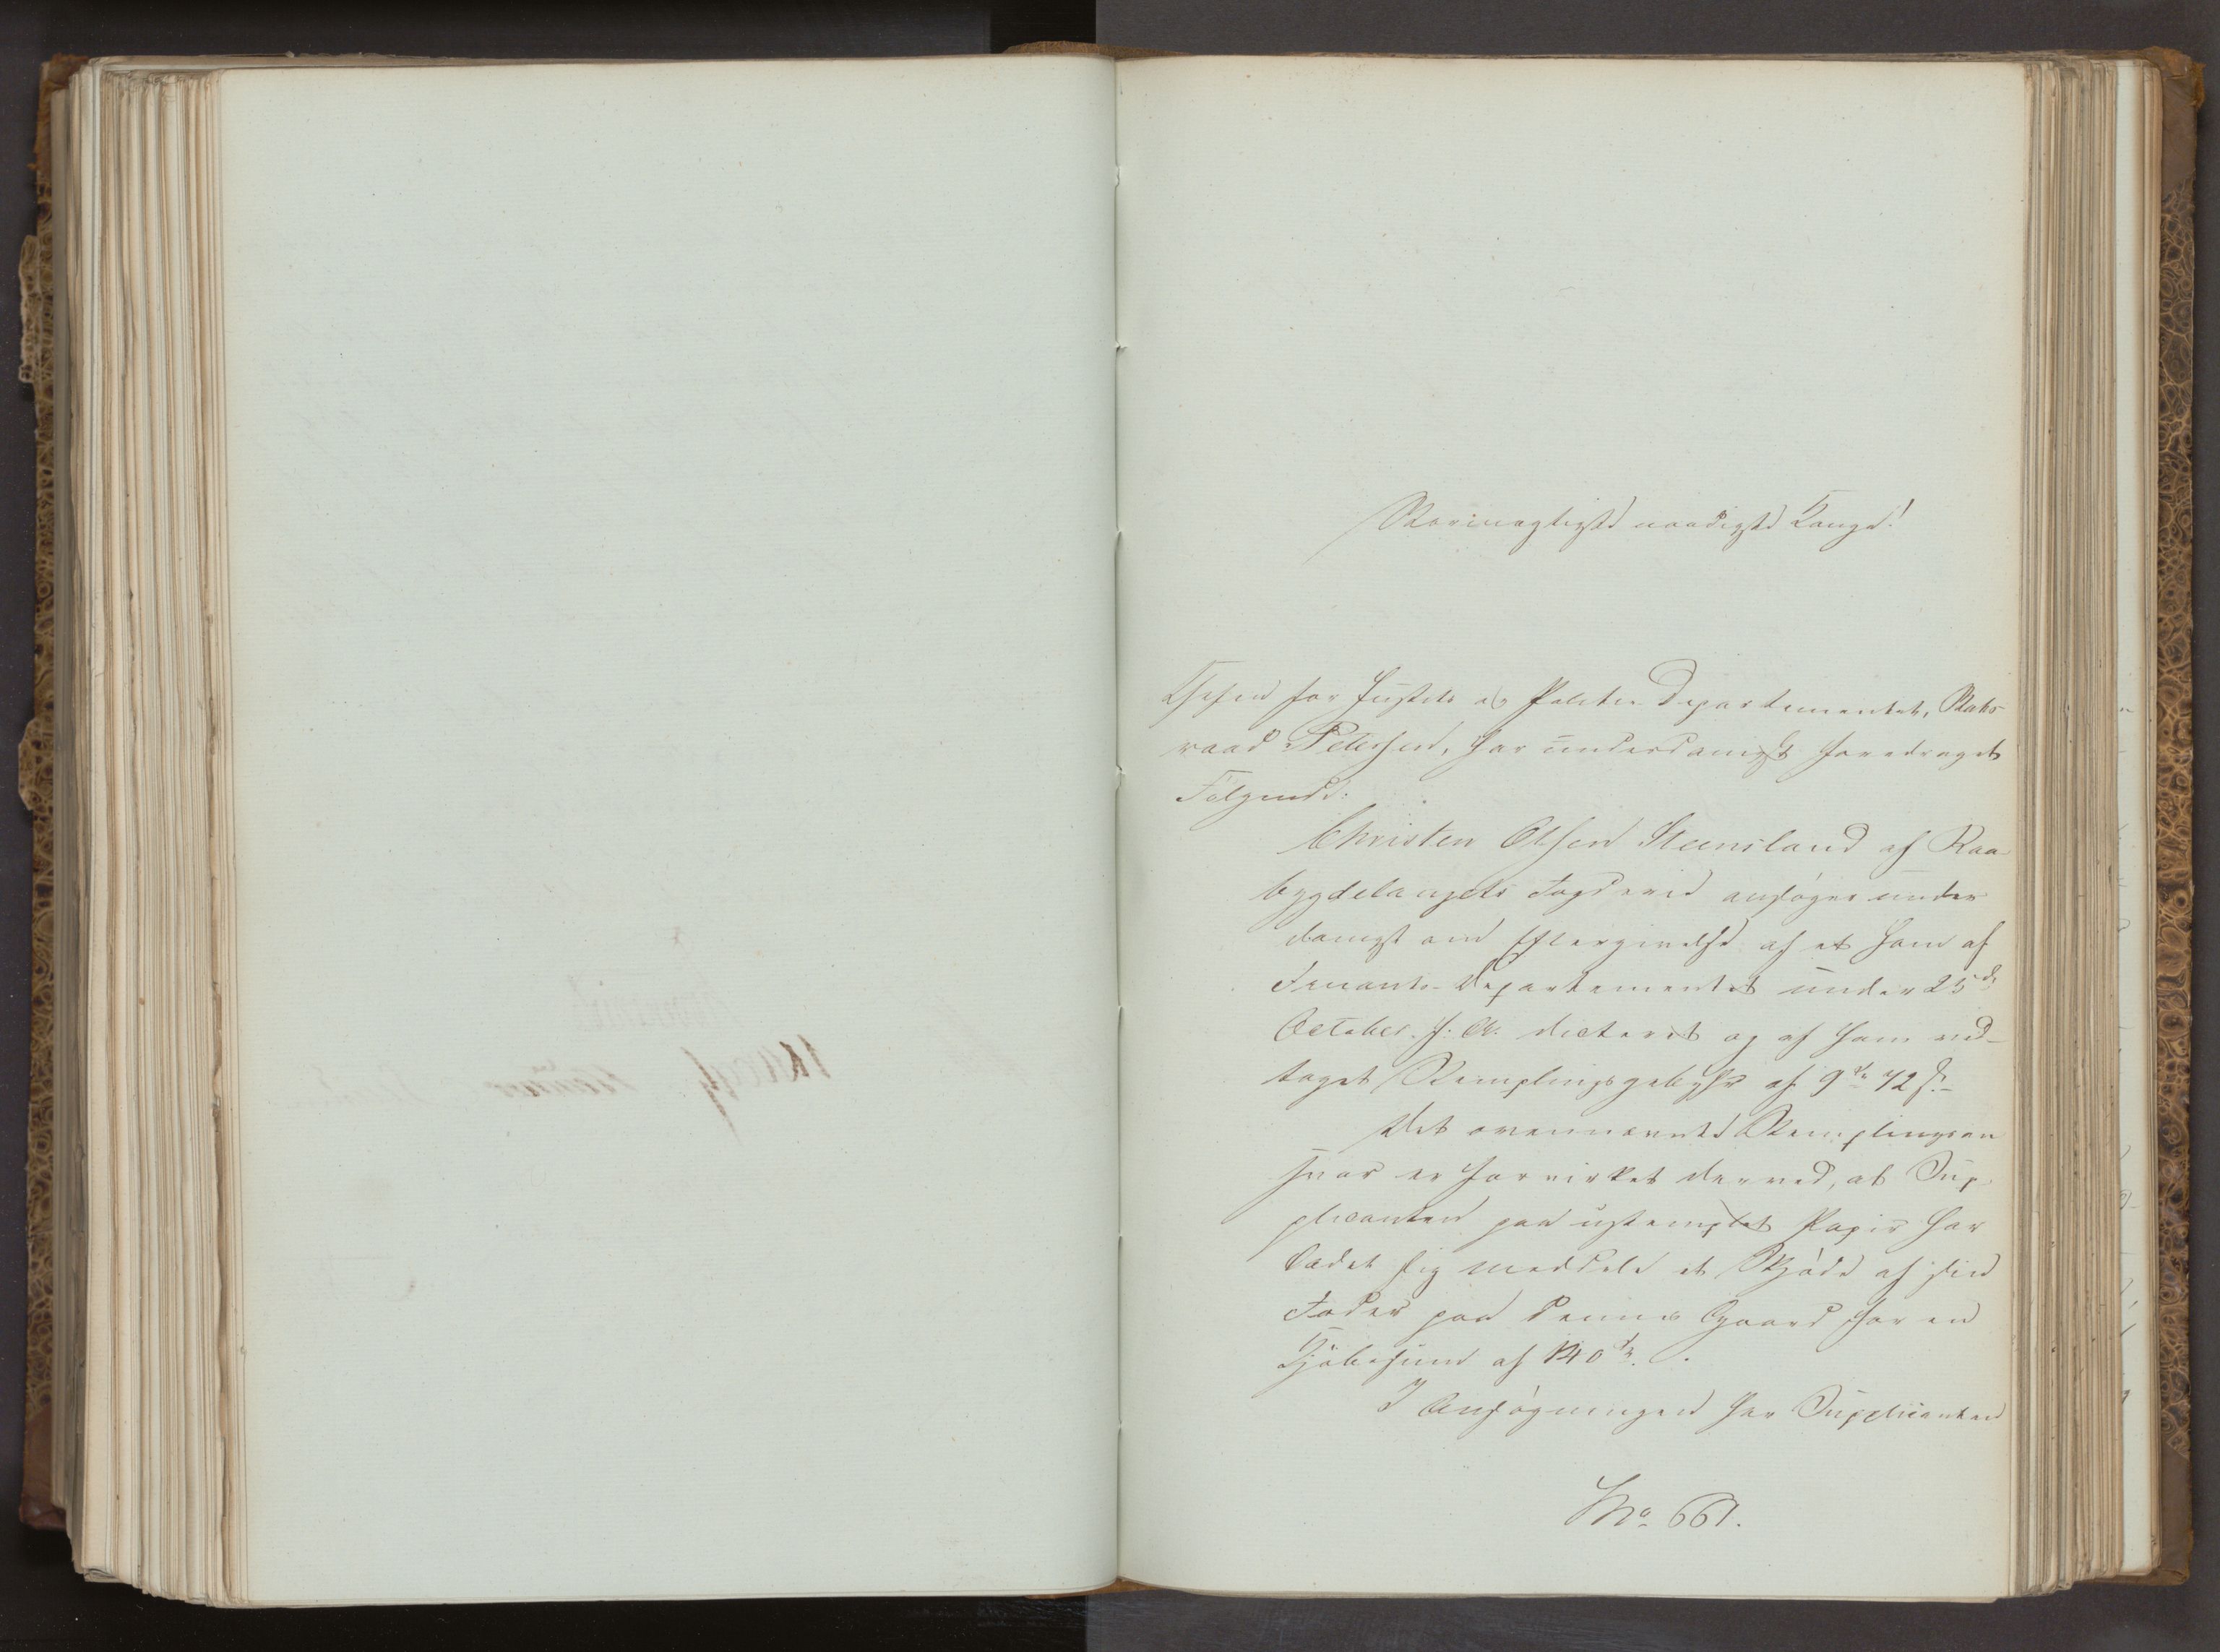 Stormægtigste naadigste Konge!
Chefen for Justits og Politie Departementet, Stats-
raad Petersen, har underdanigst foredraget
Følgende:
Christen Olsen Steensland af Raa-
bygdelagets Fogderie ansøger under-
danigst om Eftergivelse af et ham af
Finants-Departementet under 25de
October f. A. dicteret og af ham ved-
taget Stemplingsgebyhr af 9 72 s.
Det ovennævnte Stemplingsan-
svar er forvirket derved, at Sup-
plicanten paa ustemplet Papir har
ladet sig meddele et Skjøde af sin
Fader paa dennes Gaard for en
Kjøbesum af 140
I Ansøgningen har Supplicanten
No 661.